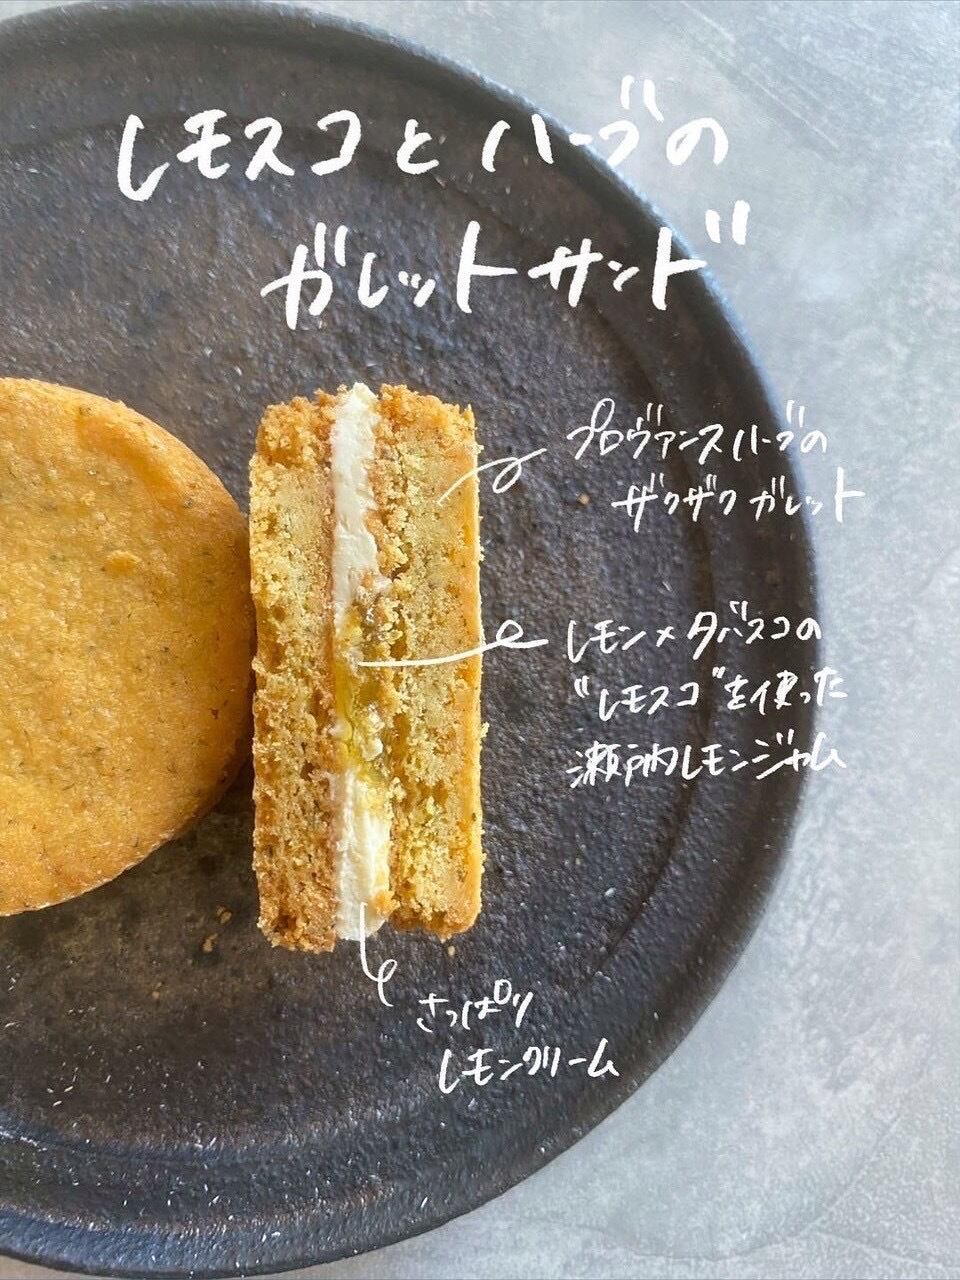 レモスコとハーブの
ガレットサンド
プロヴァンスハーブの
ザクザクガレット
レモン×タバスコの
"レモスコ"を使った
瀬戸内レモンジャム
さっぱり
レモンクリーム